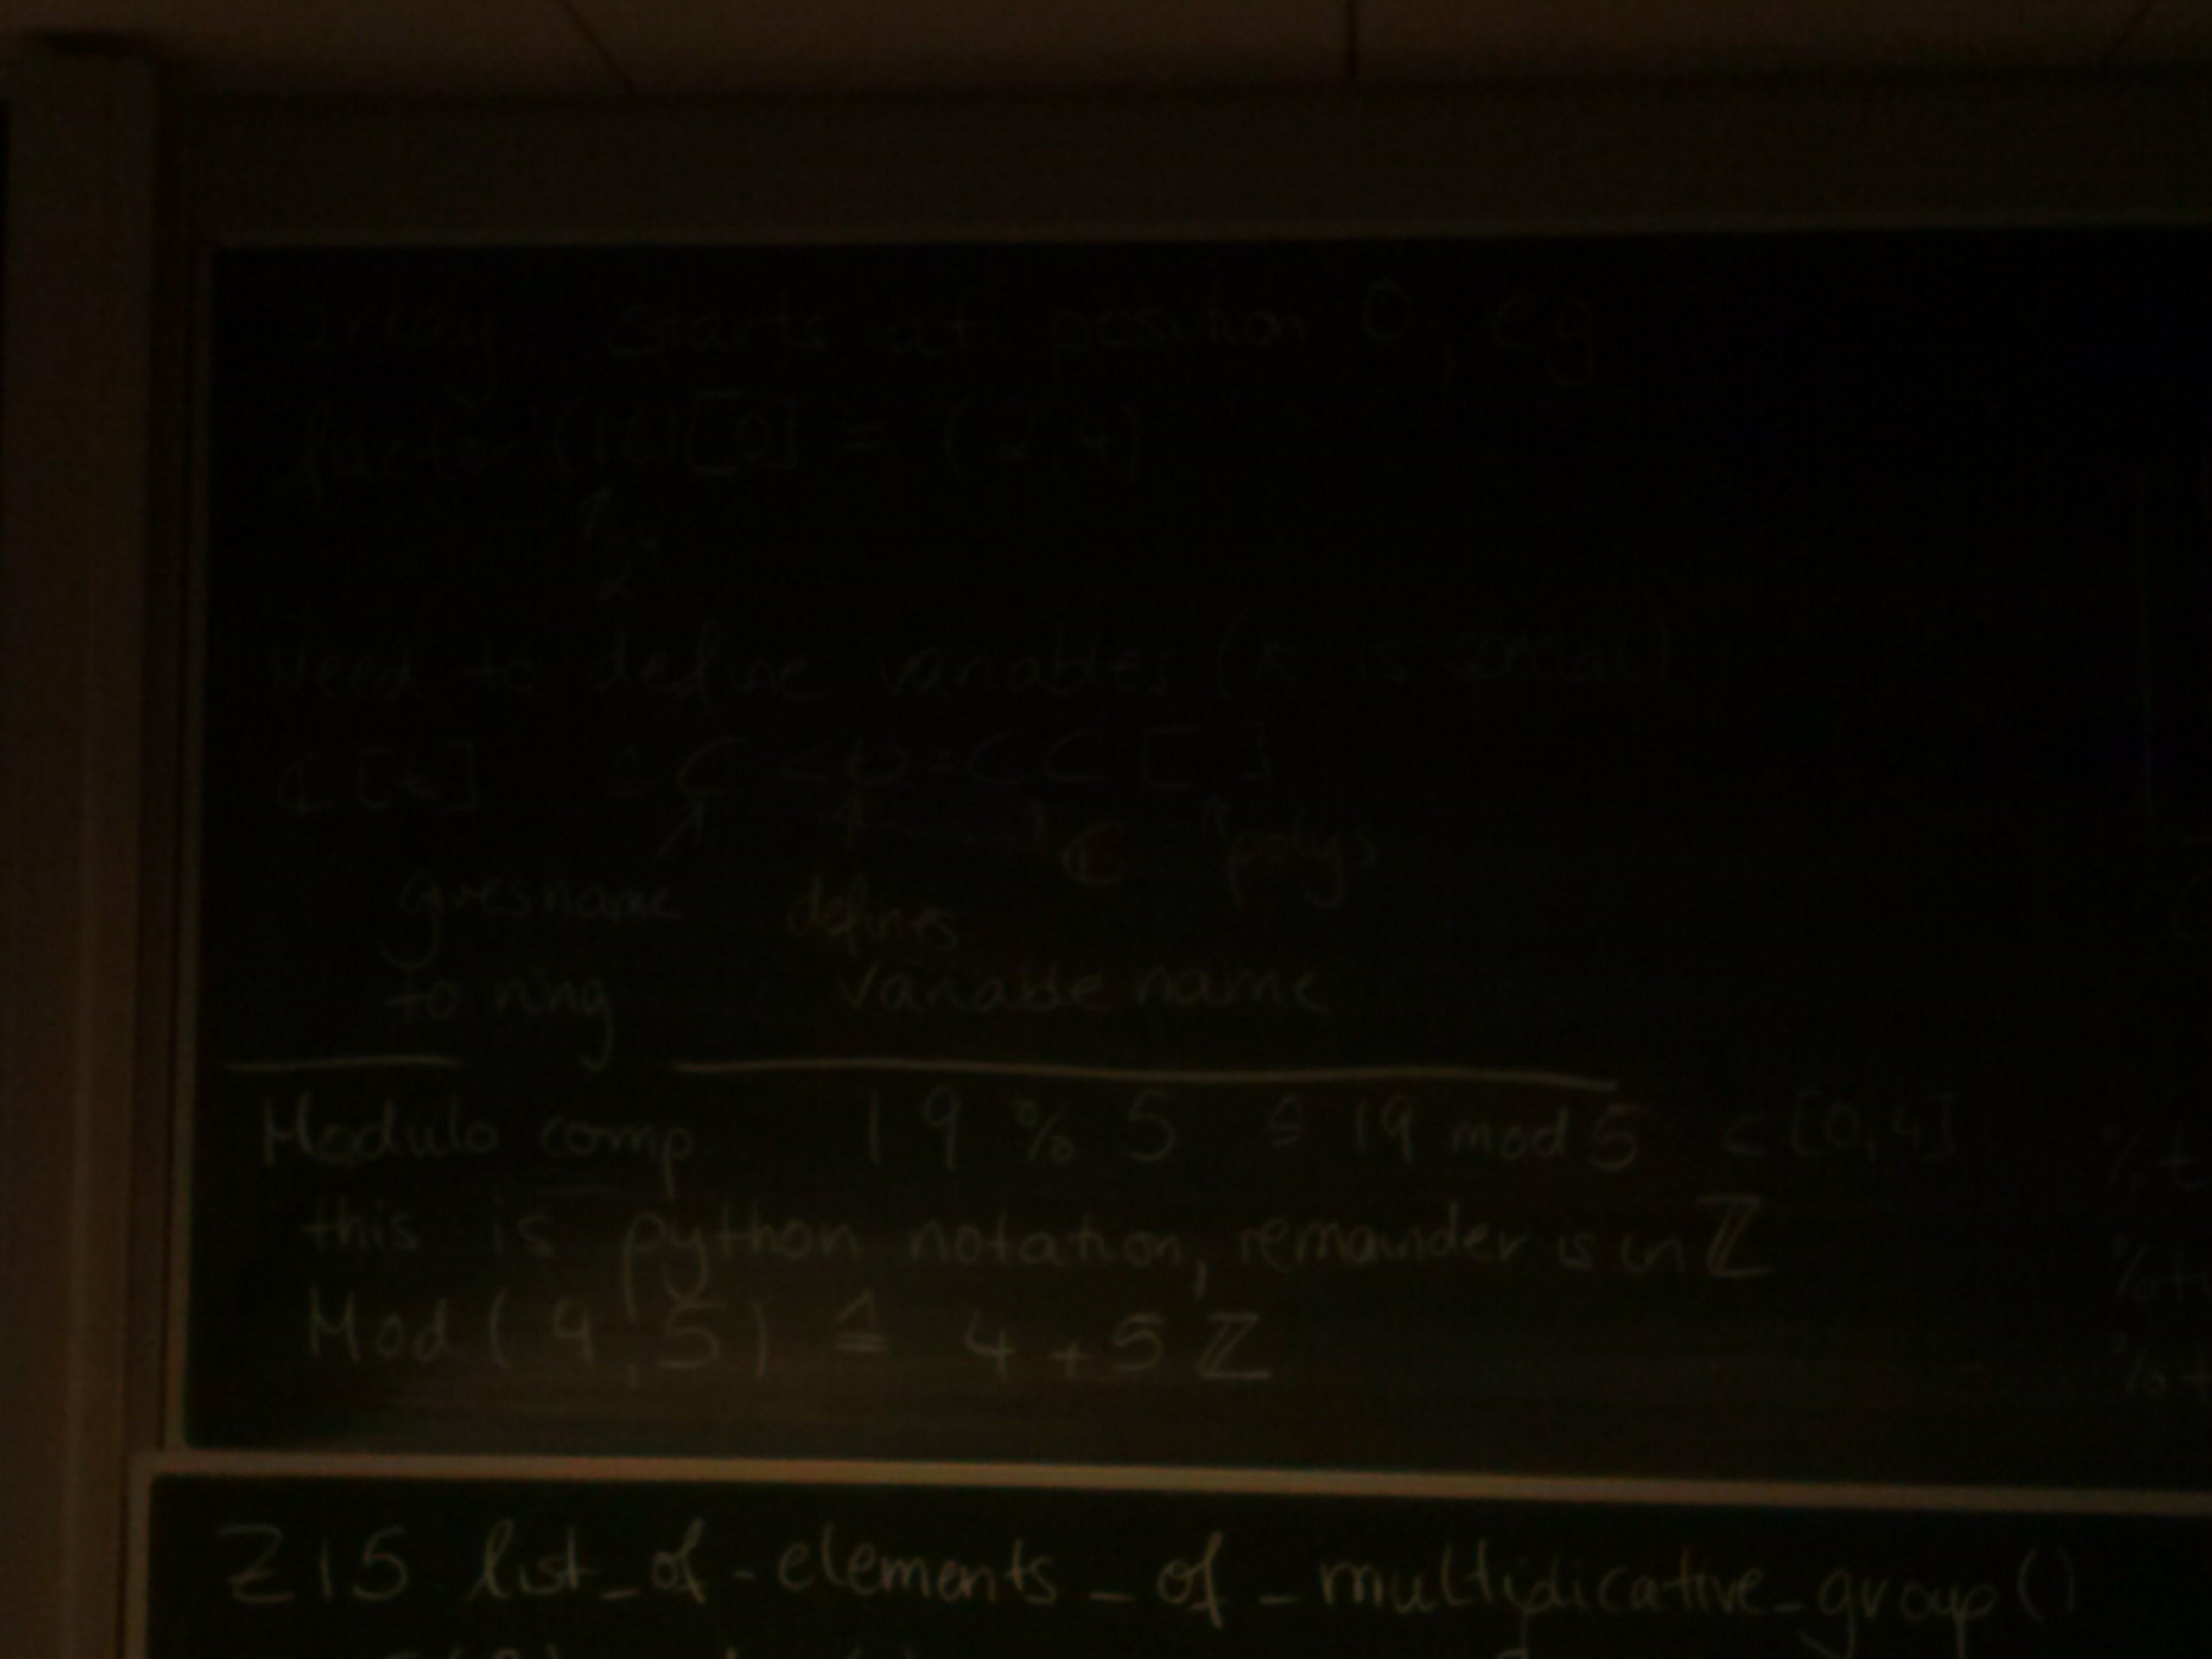 array starts at position 0, eg
factor (16)[0] = (2,4)
↑
2⁴
Need to define variables (x is special)
ℂ[x] C <p>=CC[]
ℂ polys
gives name defines
to ring variable name
Modulo comp 19 % 5 ≙ 19 mod 5 ∈ [0,4]
this is python notation, remainder is in ℤ
Mod(9,5) ≙ 4+5ℤ
Z15.list_of_elements_of_multiplicative_group()